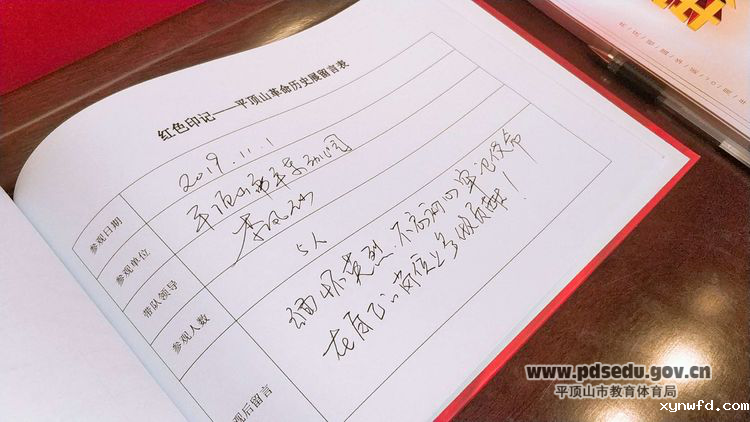 红色印记——平顶山革命历史展留言表
参观日期 2019.11.1
参观单位 平顶山市
带队领导
参观人数 5人
观后留言 缅怀英烈，不忘初心，牢记使命
在自己岗位上多做贡献！
www.pdsedu.gov.cn
平顶山市教育体育局
xynwfd.com